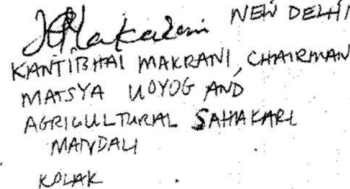 NEW DELHI
KANTIBHAI MAKRANI, CHAIRMAN
MATSYA UDYOG AND
AGRICULTURAL SAHAKARI
MANDALI
KOLAK